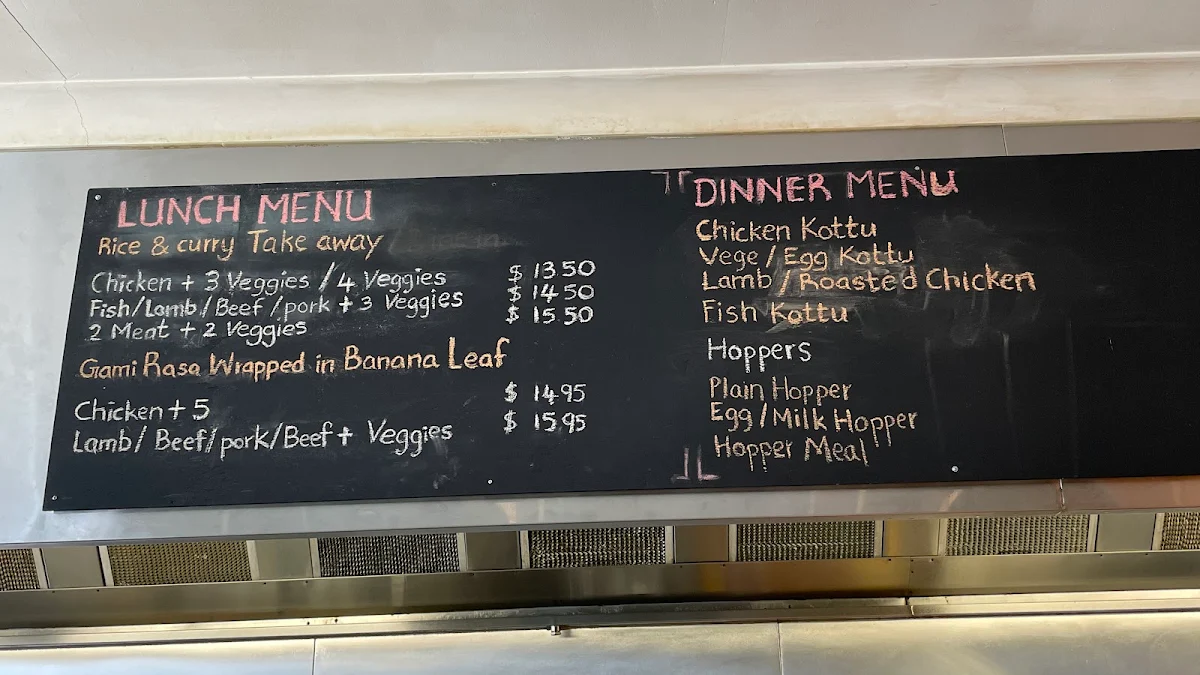 LUNCH MENU
Rice & curry Take away
Chicken + 3 Veggies / 4 Veggies $ 13.50
Fish/Lamb/Beef/pork + 3 Veggies $ 14.50
2 Meat + 2 Veggies $ 15.50
Gami Rasa Wrapped in Banana Leaf
Chicken + 5 $ 14.95
Lamb/ Beef/pork/Beef + Veggies $ 15.95
DINNER MENU
Chicken Kottu
Vege / Egg Kottu
Lamb / Roasted Chicken
Fish Kottu
Hoppers
Plain Hopper
Egg/Milk Hopper
Hopper Meal